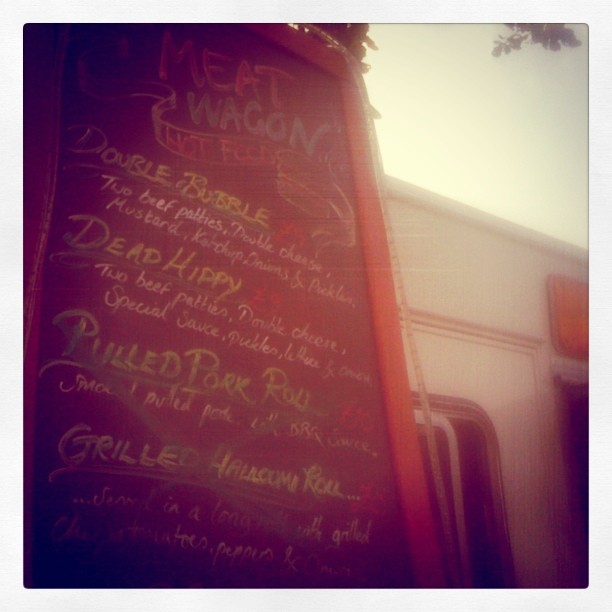 MEAT
WAGON
HOT FOOD
DOUBLE BUBBLE
Two beef patties, Double cheese,
Mustard, Ketchup, Onions & Pickles,
DEAD HIPPY
Two beef patties, Double cheese,
Special Sauce, pickles, lettuce & onion
PULLED PORK ROLL £10
pulled pork, with BBQ Sauce.
GRILLED HALLOUMI ROLL...
...Served in a long roll with grilled
tomatoes, peppers &